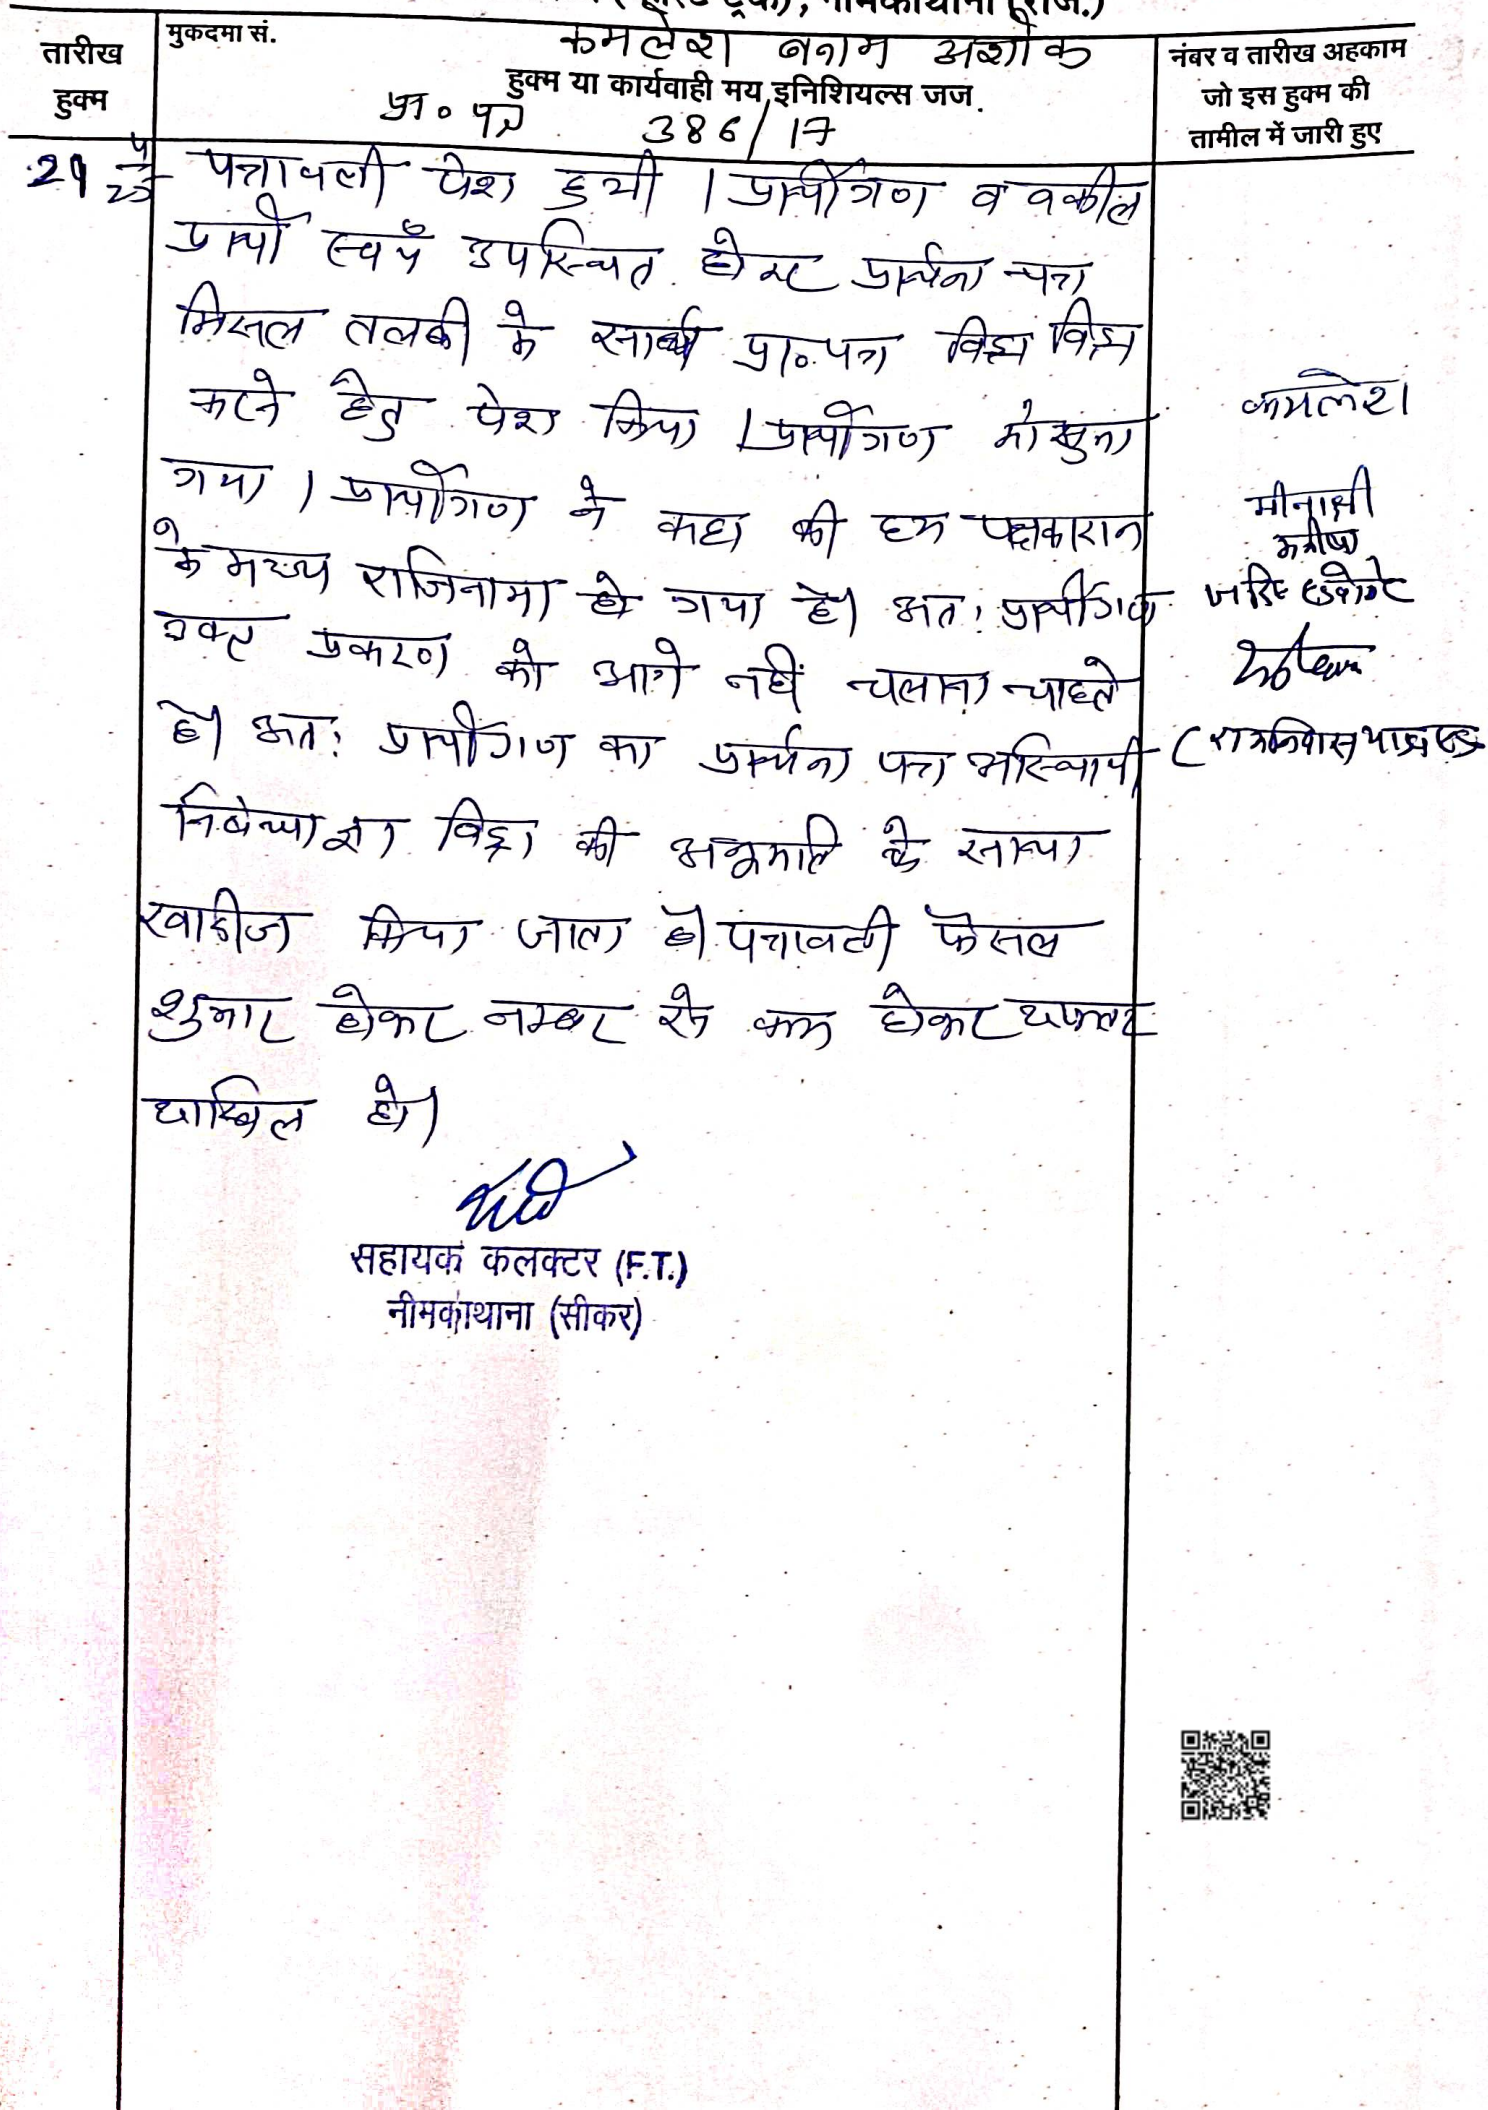 नीमकाथाना (राज.)
तारीख हुक्म
मुकदमा सं.
कमलेश बनाम अशोक
हुक्म या कार्यवाही मय इनिशियल्स जज
प्रा० पत्र 386/17
नंबर व तारीख अहकाम
जो इस हुक्म की
तामील में जारी हुए
पत्रावली पेश हुयी । प्रार्थीगण व वकील
प्रार्थी स्वयं उपस्थित होकर प्रार्थना पत्र
मिसल तलबी के साथ प्रा०पत्र विड्रा
करने हेतु पेश किया । प्रार्थीगण को सुना
गया । प्रार्थीगण ने कहा की हम पक्षकारान
के मध्य राजिनामा हो गया है। अतः प्रार्थीगण
उक्त प्रकरण को आगे नहीं चलाना चाहते
है। अतः प्रार्थीगण का प्रार्थना पत्र अस्थायी
निषेधाज्ञा विड्रा की अनुमति के साथ
खारीज किया जाता है। पत्रावली फैसल
शुमार होकर नम्बर से कम होकर दफ्तर
दाखिल हो।
कमलेश
मीनाक्षी
मनीषा
सहायक कलक्टर (F.T.)
नीमकाथाना (सीकर)